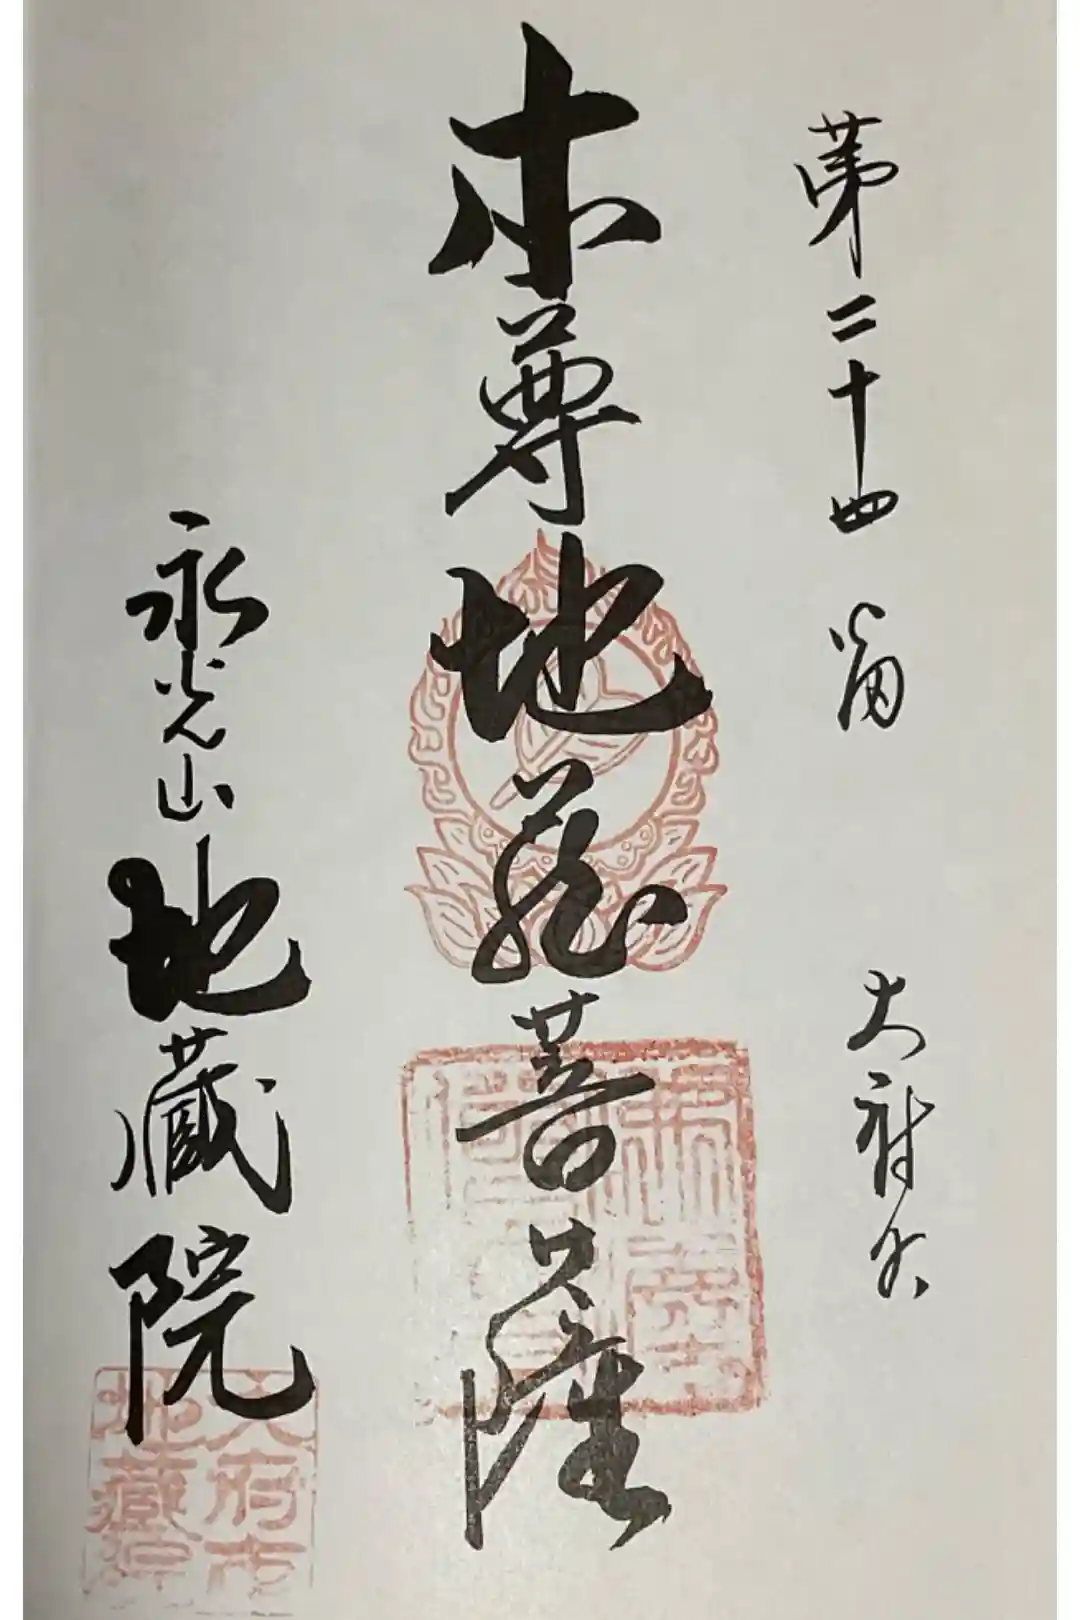 第二十四番 大府市
本尊地蔵菩薩
永光山地蔵院
大府市
地蔵院